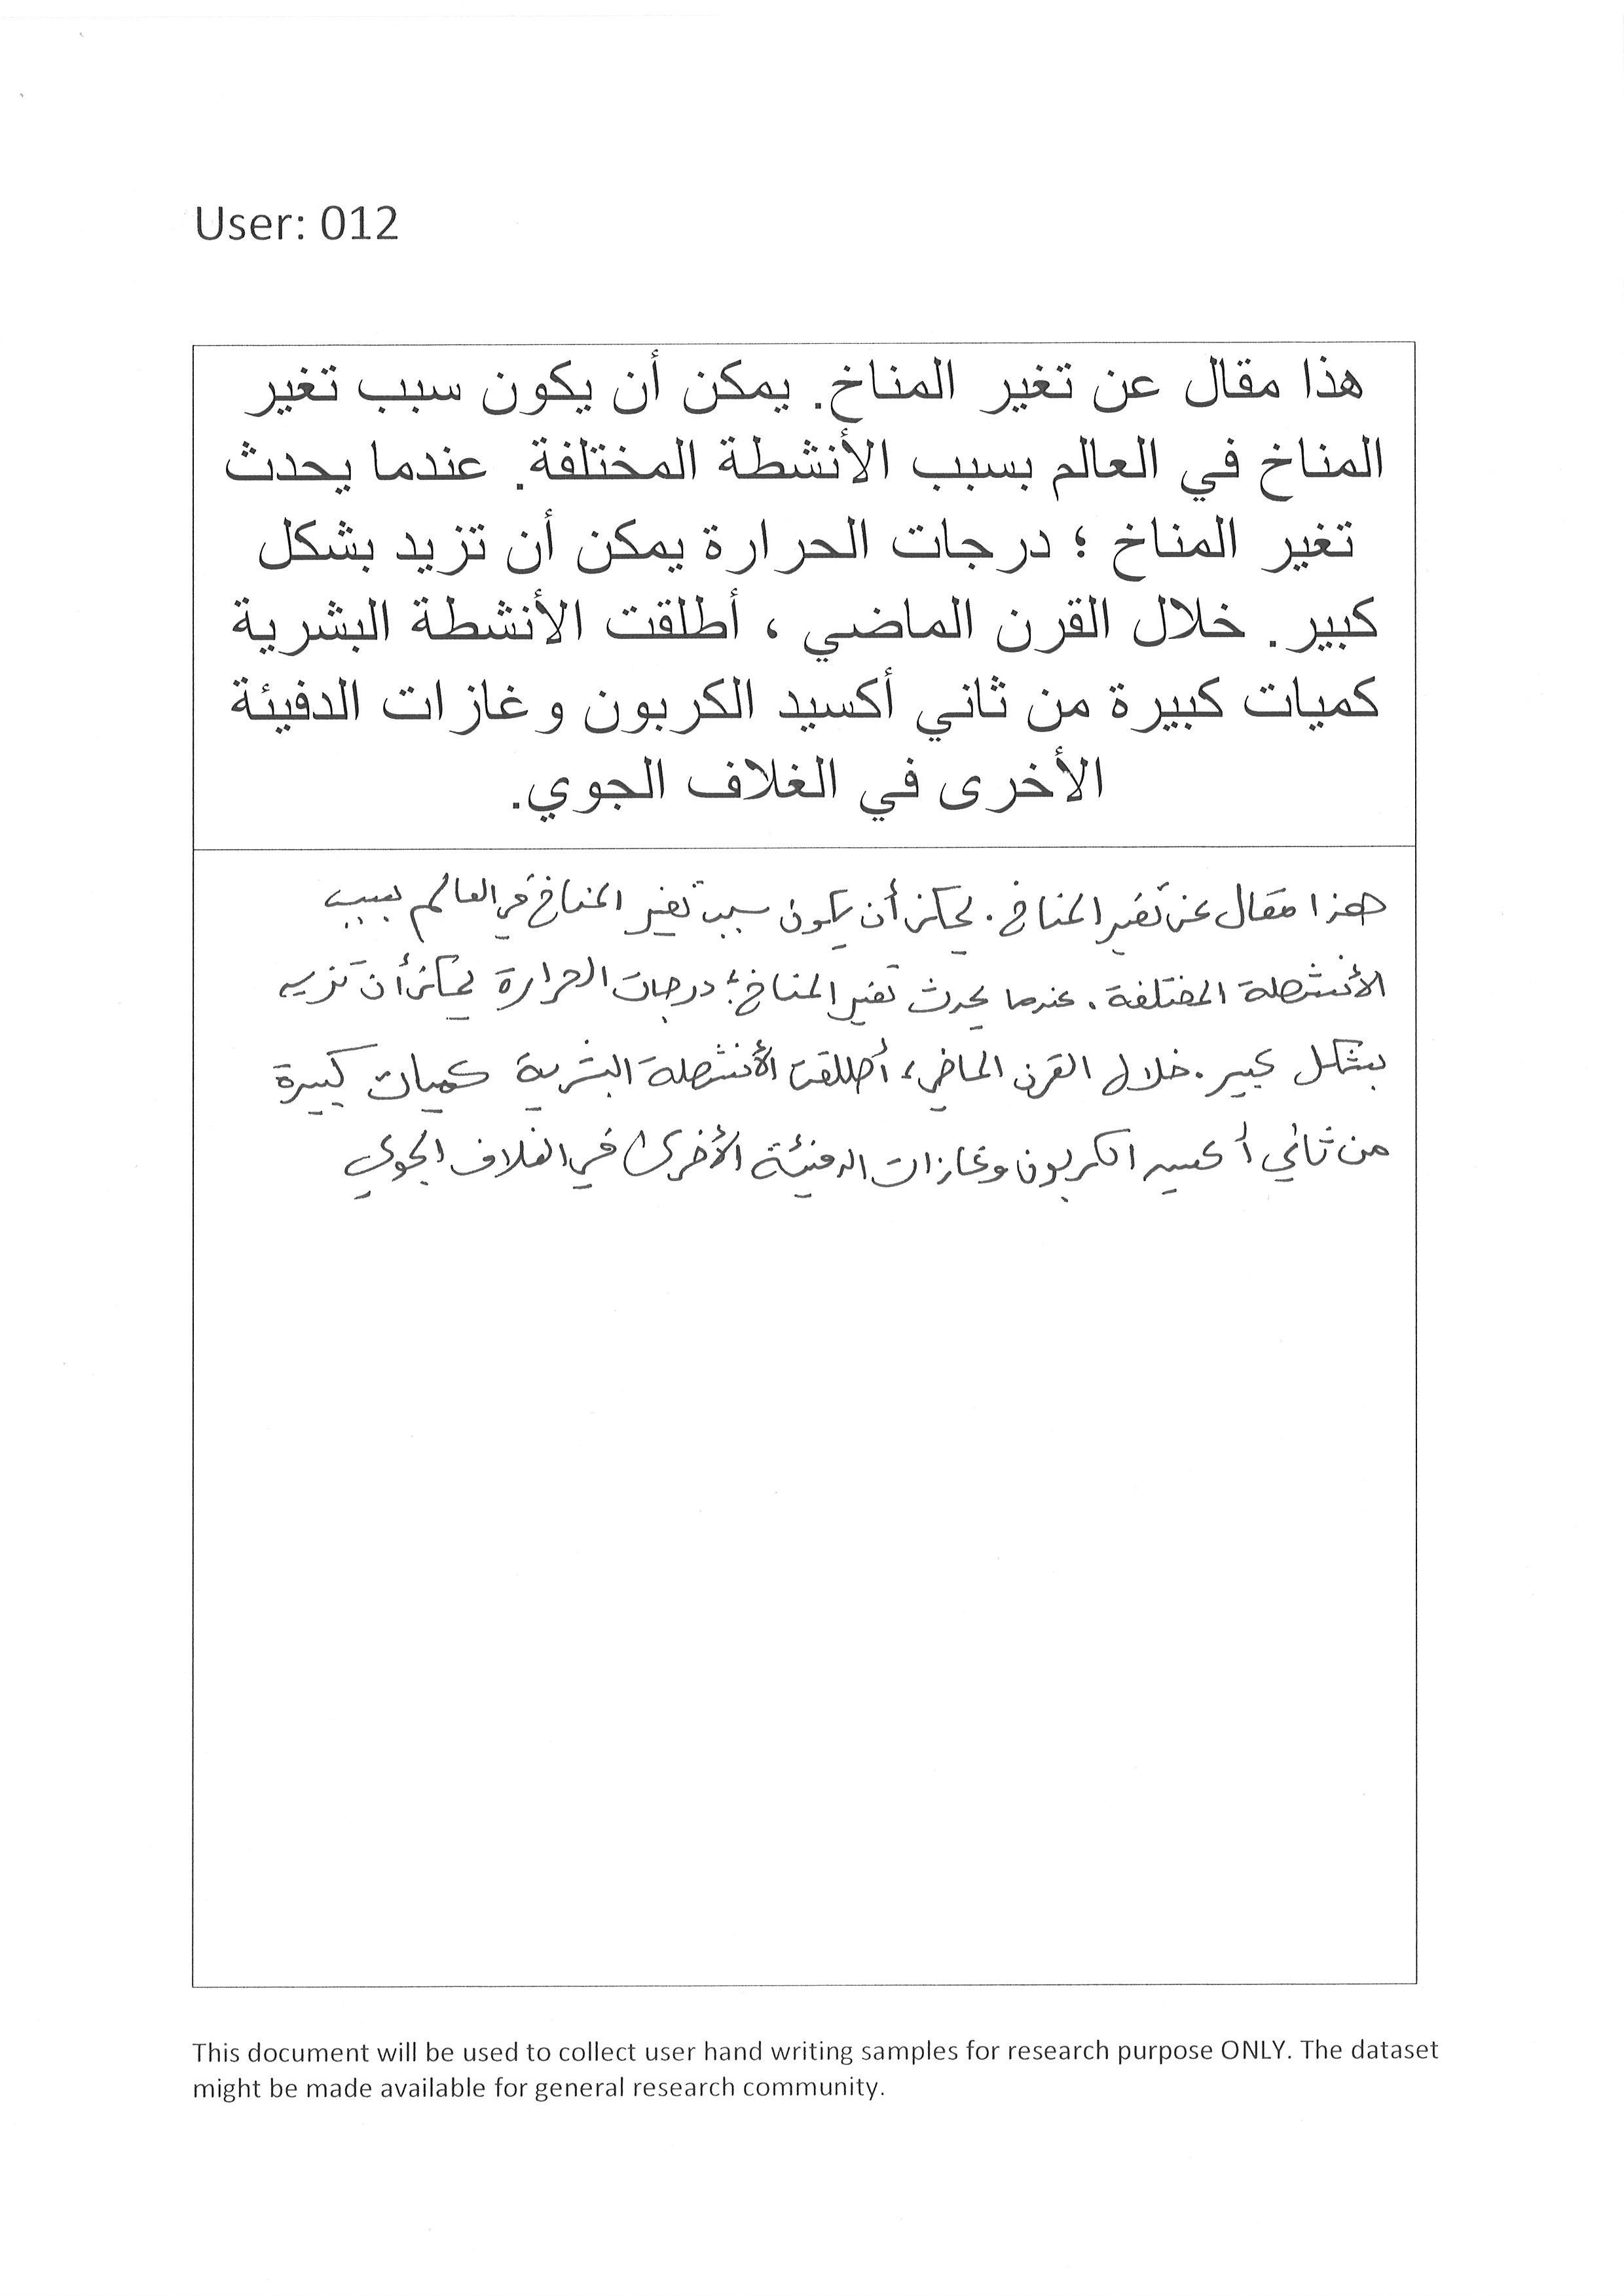 User: 012
هذا مقال عن تغير المناخ. يمكن أن يكون سبب تغير
المناخ في العالم بسبب الأنشطة المختلفة. عندما يحدث
تغير المناخ ؛ درجات الحرارة يمكن أن تزيد بشكل
كبير. خلال القرن الماضي ، أطلقت الأنشطة البشرية
كميات كبيرة من ثاني أكسيد الكربون و غازات الدفيئة
الأخرى في الغلاف الجوي.
هذا مقال عن تغير المناخ. يمكن أن يكون سبب تغير المناخ في العالم بسبب
الأنشطة المختلفة. عندما يحدث تغير المناخ؛ درجات الحرارة يمكن أن تزيد
بشكل كبير. خلال القرن الماضي، أطلقت الأنشطة البشرية كميات كبيرة
من ثاني أكسيد الكربون وغازات الدفيئة الأخرى في الغلاف الجوي
This document will be used to collect user hand writing samples for research purpose ONLY. The dataset
might be made available for general research community.